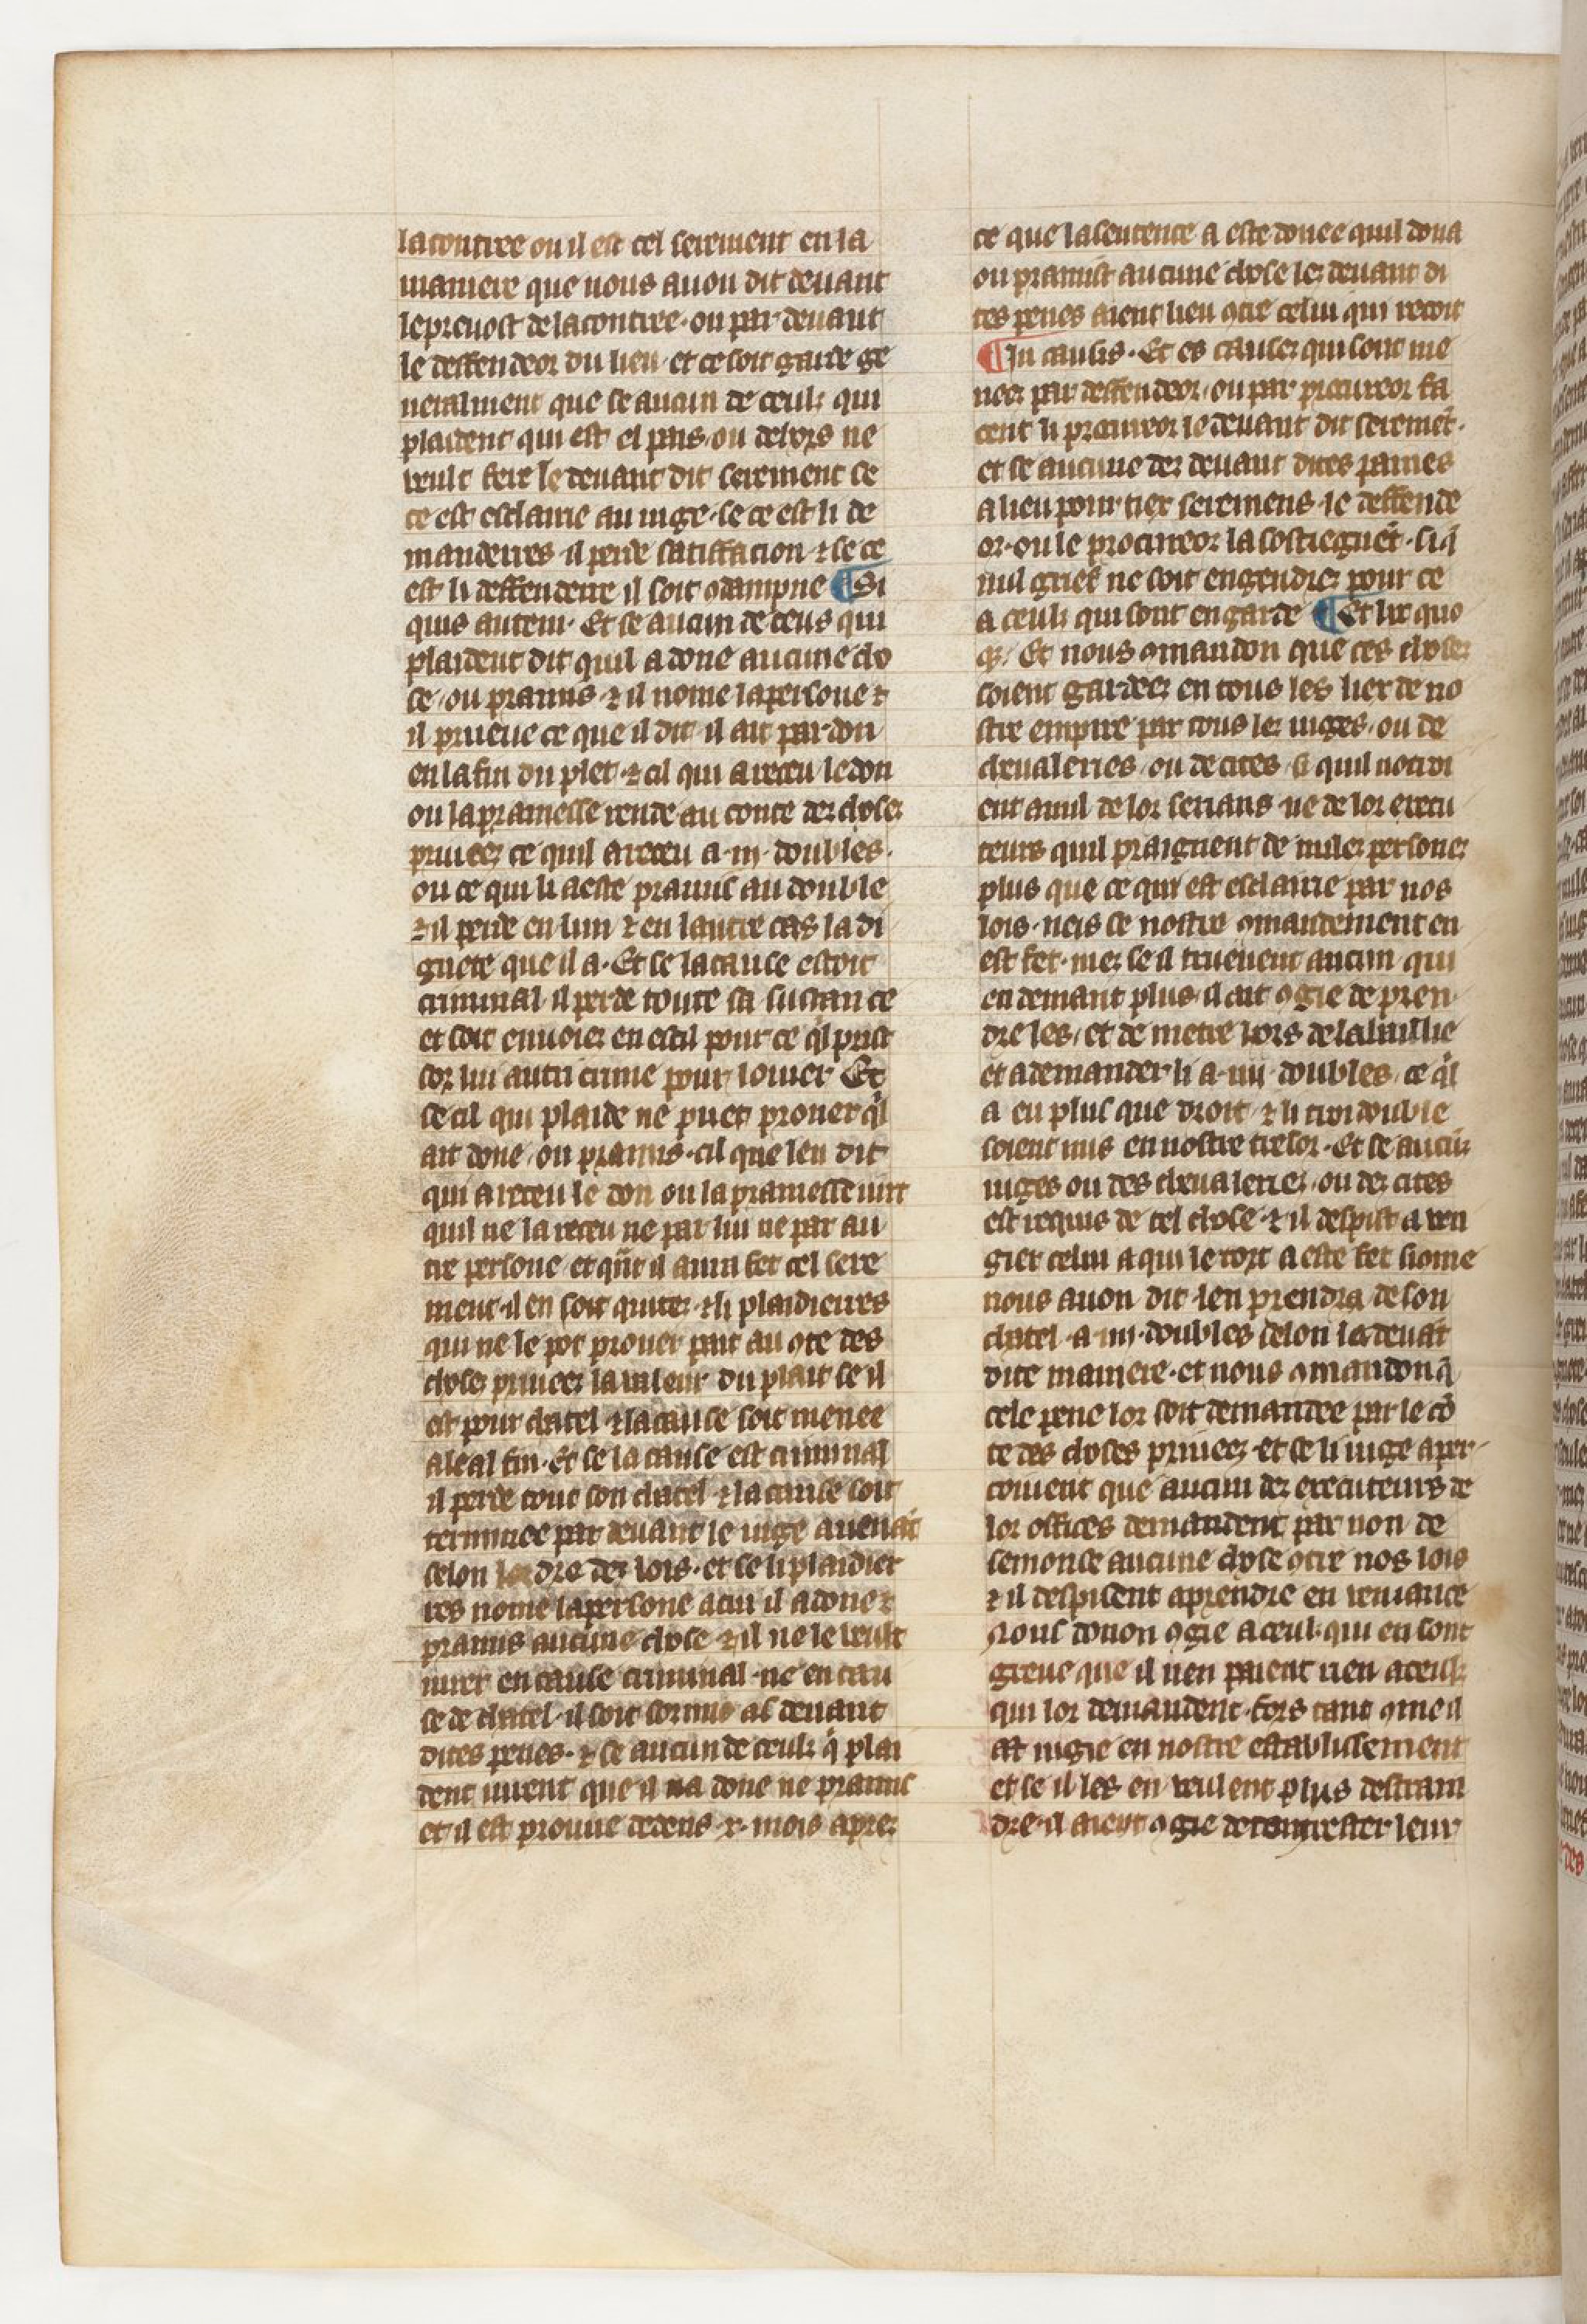 la contree ou il est cel serement en la
maniere que nous auon dit deuant
le preuost de la contree· ou par deuant
le deffendeor du lieu· et ce soit garde ge
neralment que se aucun de ceuls qui
plaident qui est el pais· ou dehors ne
veult fere le deuant dit serement se
ce est esclairie au iuge· se ce est li de
manderres il perde satiffacion ⁊ se ce
est li deffenderre il soit ꝯdampne ¶ Si
quis autem· Et se aucun de ceus qui
plaident dit quil a done aucune cho
se· ou pramis· ⁊ il nome la persone ⁊
il prueue ce que il dit· il ait pardon
en la fin du plet· ⁊ cil qui a receu le don
ou la pramesse rende au conte des choses
priuees ce quil a receu a ·iii· doubles·
ou ce qui li a este pramis au double
⁊ il perde en lun ⁊ en lautre cas la di
gnete que il a· Et se la cause estoit
criminal· il perde toute sa sustance
et soit enuoiez en essil pour ce ql prist
sor lui autri crime pour louier Et
se cil qui plaide ne puet prouer ql
ait done· ou pramis· cil que len dit
qui a receu le don ou la pramesse iurt
quil ne la receu ne par lui ne par au
tre persone· et qnt il aura fet cel sere
ment· il en soit quites· ⁊ li plaidierres
qui ne le pot prouer pait au ꝯte des
choses priuees la valeur du plait se il
est pour chatel ⁊ la cause soit menee
a leal fin· Et se la cause est criminal
il perde tout son chatel ⁊ la cause soit
terminee par deuant le iuge auenat
selon lordre des lois· et se li plaidier
res nome la persone a cui il a done ⁊
pramis aucune chose ⁊ il ne le veult
iurer en cause criminal· ne en cau
se de chatel· il soit sormis as deuant
dites penes· ⁊ se aucun de ceuls q plai
dent iurent que il na done ne pramis
et il est prouue dedens ·x· mois apres
ce que la sentence a este donee quil dona
ou pramist aucune chose les deuant di
tes penes aient lieu ꝯtre celui qui recoit
¶ In causis· Et es causes qui sont me
nees par deffendeor· ou par procureor fa
cent li procureor le deuant dit seremet·
et se aucune des deuant dites paines
a lieu pour tier seremens· le deffende
or· ou le procureor la sostieguet· si q
nul grief ne soit engendrez pour ce
a ceuls qui sont en garde ¶ Et hec quo
q· Et nous ꝯmandon que ces choses
soient gardees en tous les liex de no
stre empire par tous les iuges· ou de
cheualeries· ou de cites· si quil notroi
ent a nul de lor serians· ne de lor execu
teurs quil praignent de nules persones
plus que ce qui est esclairie par nos
lois· neis se nostre ꝯmandement en
est fet· mes se il trueuent aucun qui
en demant plus· il ait ꝯgie de pren
dre les· et de metre hors de la baillie
et a demander li a ·iiii· doubles· ce ql
a eu plus que droit· ⁊ li troi double
soient mis en nostre tresor· Et se aucun
iuges ou des cheualeries· ou des cites
est requis de tel chose· ⁊ il despist a ven
gier celui a qui le tort a este fet si ome
nous auon dit· len prendra de son
chatel· a ·iiii· doubles selon la deuat
dite maniere· et nous ꝯmandon q
cele pene lor soit demandee par le co
te des choses priuees· et se li iuge aper
coiuent que aucun des executeurs de
lor offices demandent par non de
semonse aucune chose ꝯtre nos lois
⁊ il despisent a prendre en veniance
Nous donon ꝯgie a ceuls qui en sont
greue que il nen paient rien a ceuls
qui lor demandent· fors tant ꝯme il
est iugie en nostre establissement
et se il les en veulent plus destrain
dre· il aient ꝯgie de contrester leur